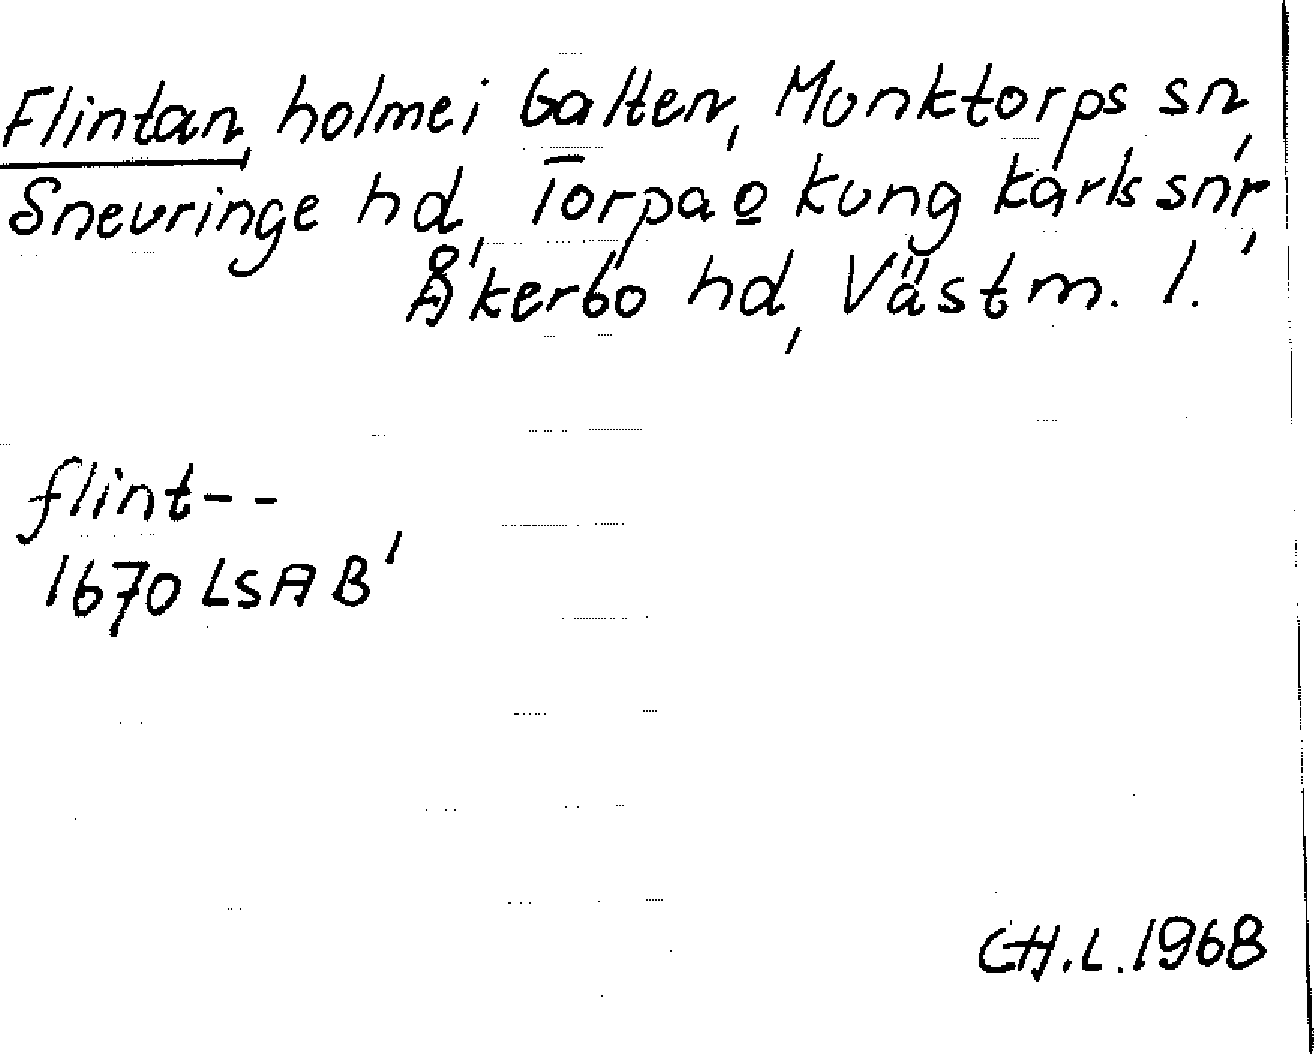 Flintan, holme i Galten, Munktorps sn,
Snevringe hd, Torpa o Kung Karls snr,
Åkerbo hd, Västm. l.
flint--
1670 LSA B'
CH.L. 1968